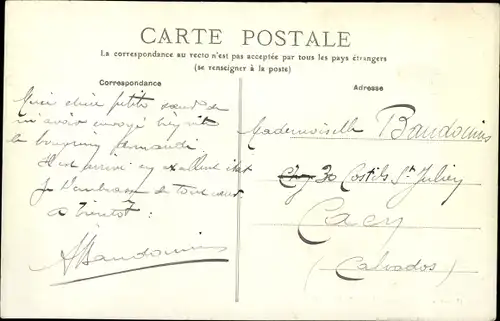 CARTE POSTALE
La correspondance au recto n'est pas acceptée par tous les pays étrangers
(se renseigner à la poste)
Correspondance
Adresse
Merci chère petite sœur de
m'avoir envoyé très vite
le demandé
Il est arrivé en excellent état
Je t'embrasse de tout cœur
a bientôt
ABaudouin
Mademoiselle Baudouin
30 Costils St Julien
Caen
(Calvados)